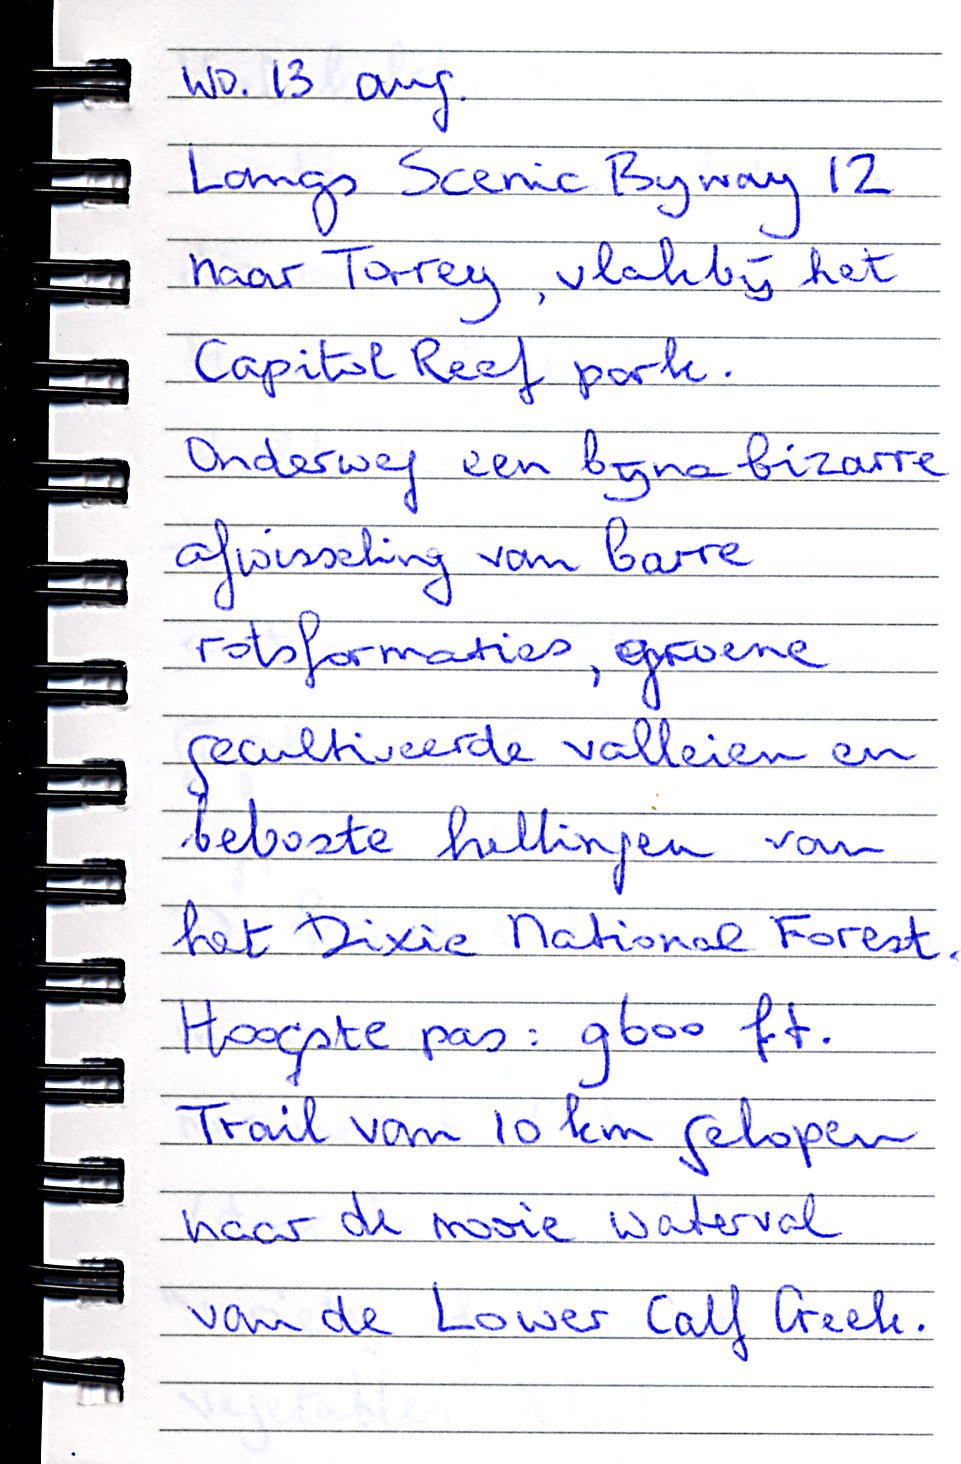 wo. 13 aug.
Langs Scenic Byway 12
naar Torrey, vlakbij het
Capitol Reef park.
Onderweg een bijna bizarre
afwisseling van barre
rotsformaties, groene
gecultiveerde valleien en
beboste hellingen van
het Dixie National Forest.
Hoogste pas: 9600 ft.
Trail van 10 km gelopen
naar de mooie waterval
van de Lower Calf Creek.